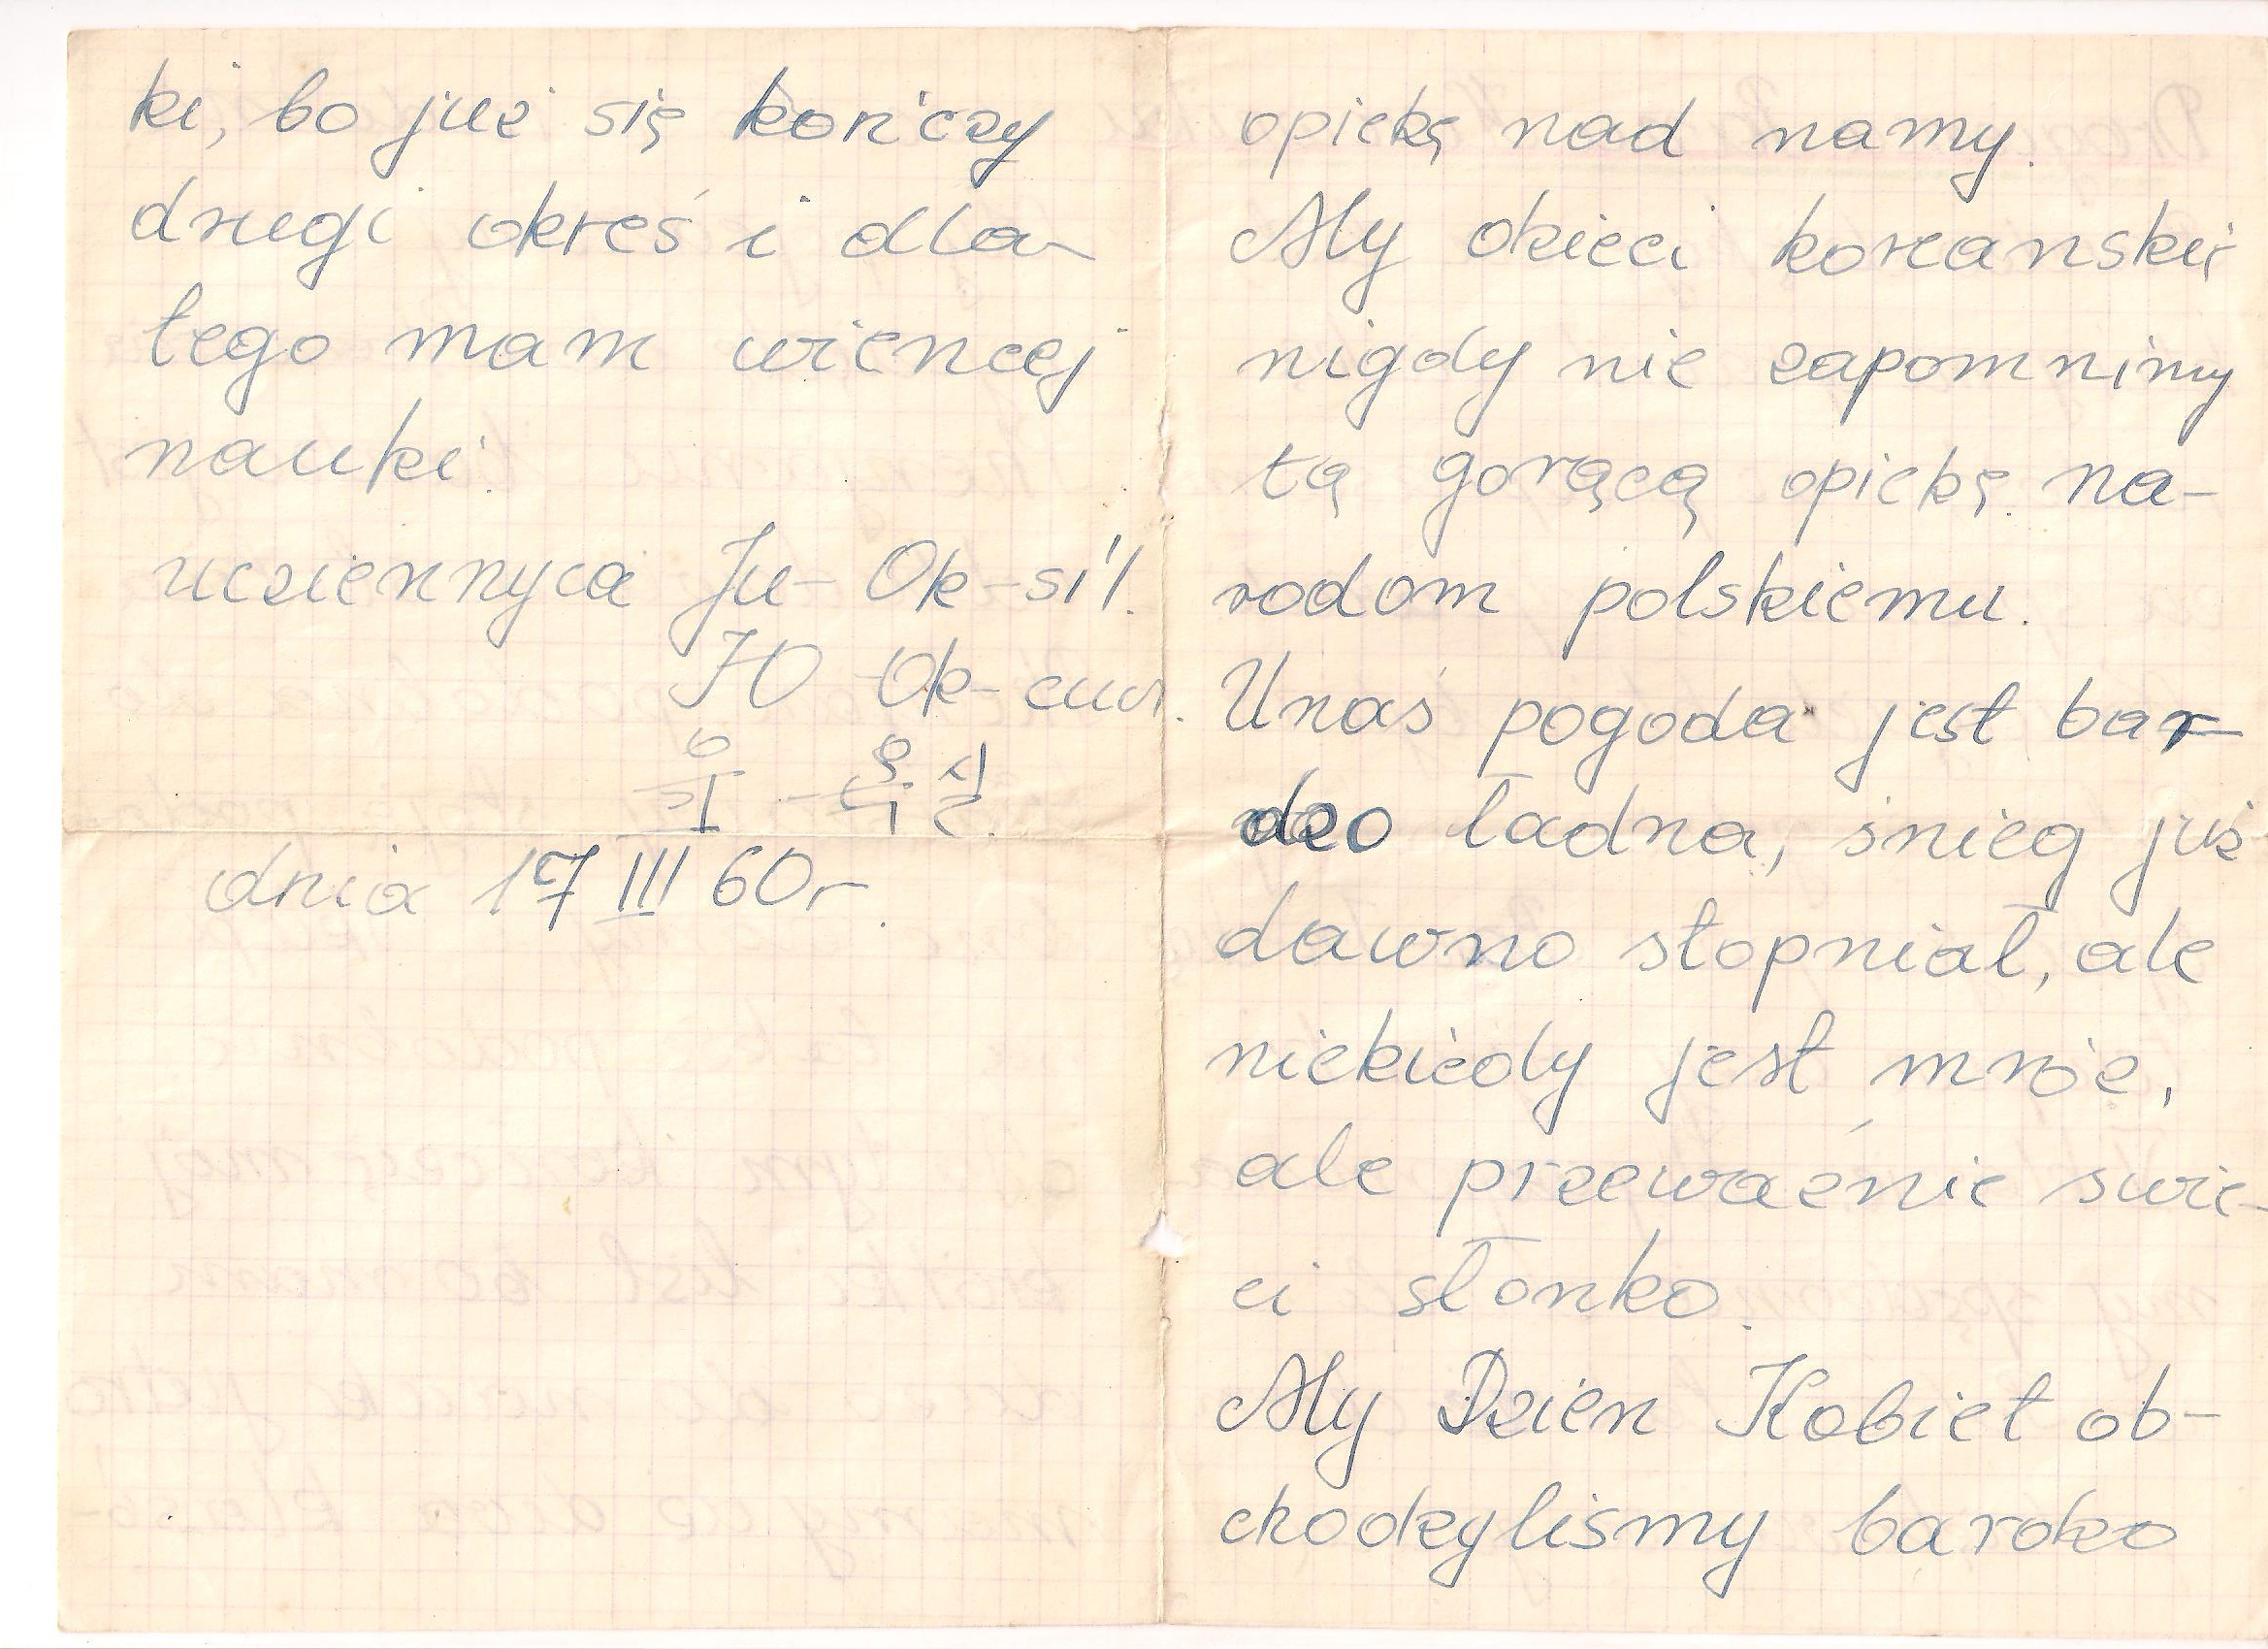 ki, bo już się kończy
drugi okreś i dla-
tego mam wiencej
nauki.
ucziennyca Ju-Ok-si'l.
JO Ok-
임 - 옥실.
dnia 17 III 60r.
opiekę nad namy.
My dzieci koreanskie
nigdy nie zapomnimy
tą gorącą opiekę na-
rodom polskiemu.
Unaś pogoda jest bar-
dzo ładna, śnieg już
dawno stopniał, ale
niekiedy jest mroz,
ale przeważnie swie-
ci słonko.
My Dzien Kobiet ob-
chodzyliśmy bardzo